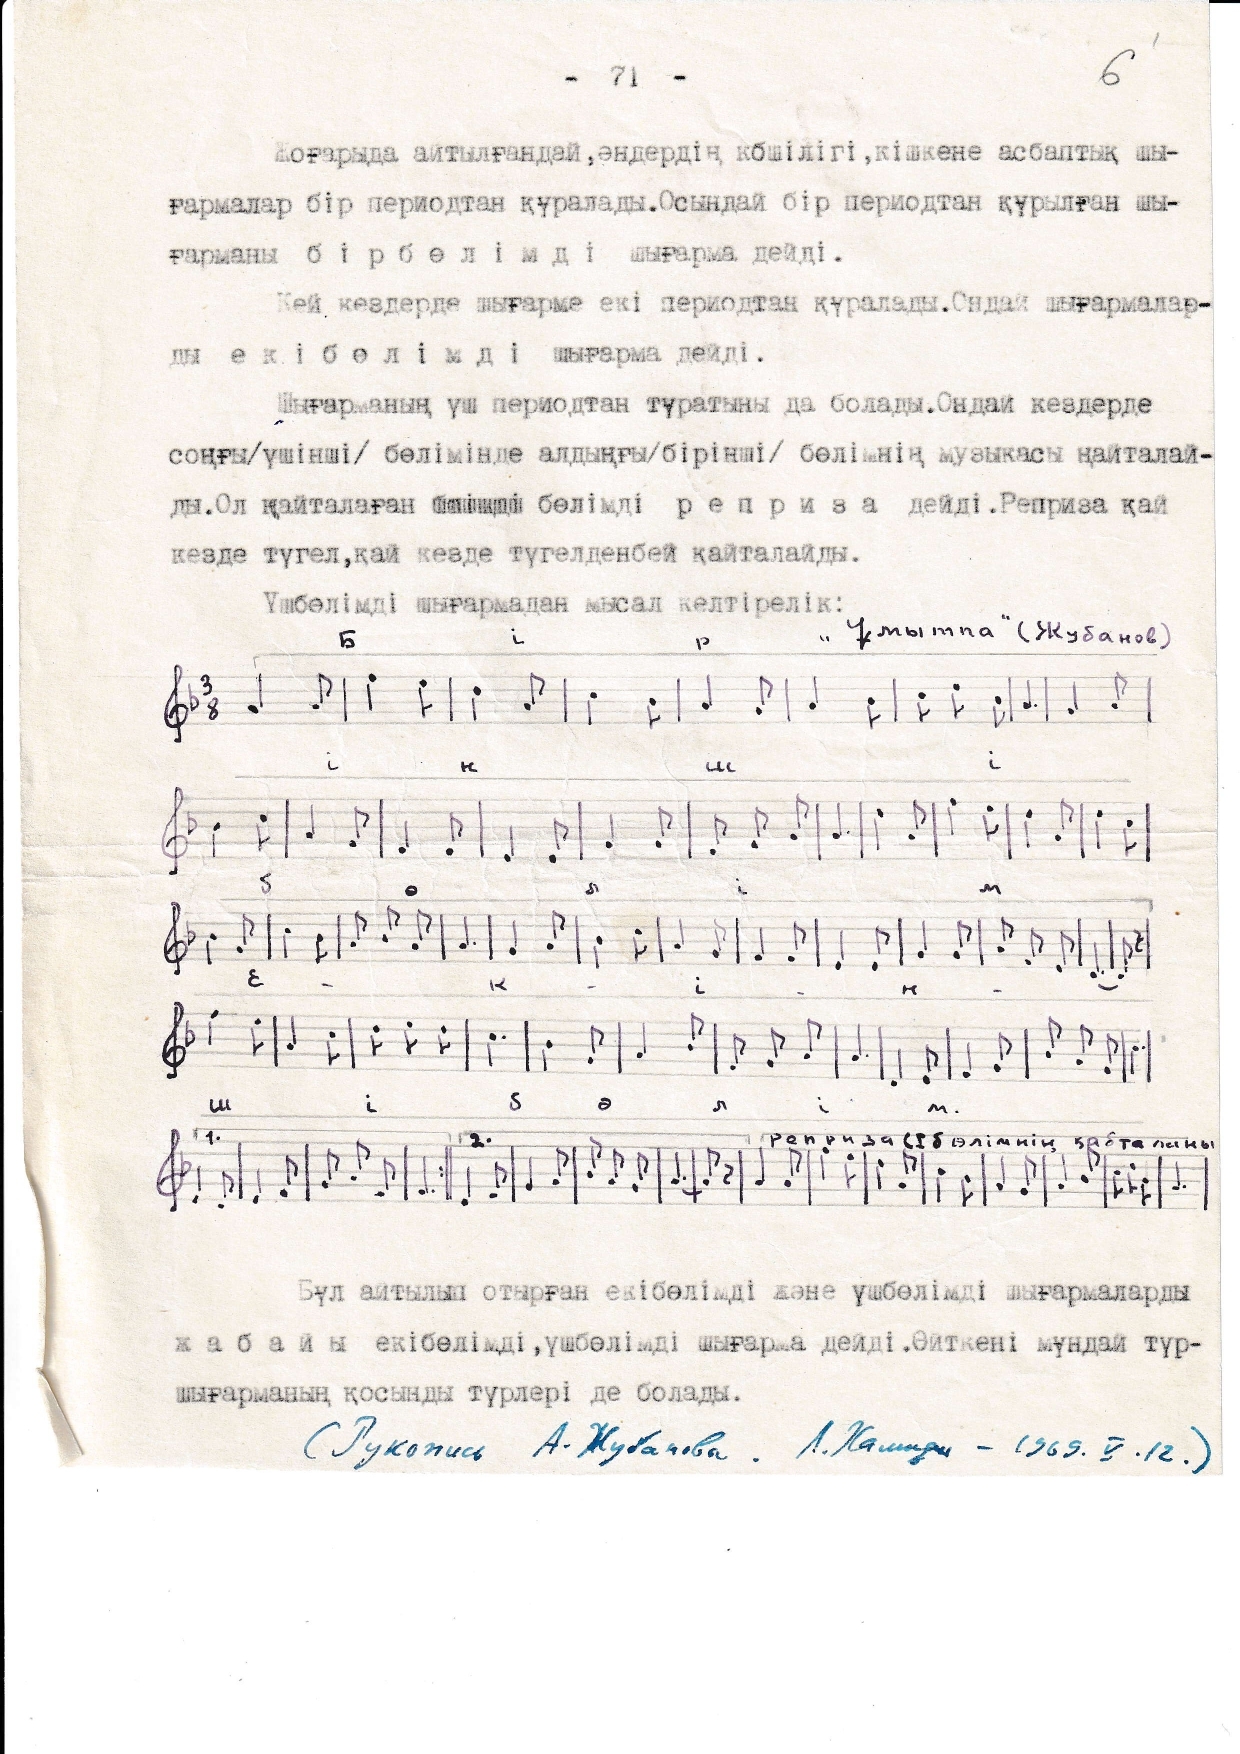 - 71 -
6
Жоғарыда айтылғандай,әндердің көшілігі,кішкене асбаптық шы-
ғармалар бір периодтан құралады.Осындай бір периодтан құрылған шы-
ғарманы б і р б ө л і м д і шығарма дейді.
Кей кездерде шығарме екі периодтан құралады.Ондай шығармалар-
ды е к і б ө л і м д і шығарма дейді.
Шығарманың үш периодтан тұратыны да болады.Ондай кездерде
соңғы/үшінші/ бөлімінде алдыңғы/бірінші/ бөлімнің музыкасы қайталай-
ды.Ол қайталаған бөлімді р е п р и з а дейді.Реприза қай
кезде түгел,қай кезде түгелденбей қайталайды.
Үшбөлімді шығармадан мысал келтірелік:
Б і р „Ұмытпа" (Жубанов)
3
8
і н ш і
б ө л і м
Е - к - і - н -
ш і б ө л і м.
1. 2. реприза (I бөлімнің қайталаны
Бұл айтылып отырған екібөлімді және үшбөлімді шығармаларды
ж а б а й ы екібөлімді,үшбөлімді шығарма дейді.Өйткені мұндай түр-
шығарманың қосынды түрлері де болады.
(Рукопись А. Жубанова. Л.Хамиди - 1969. V .12.)